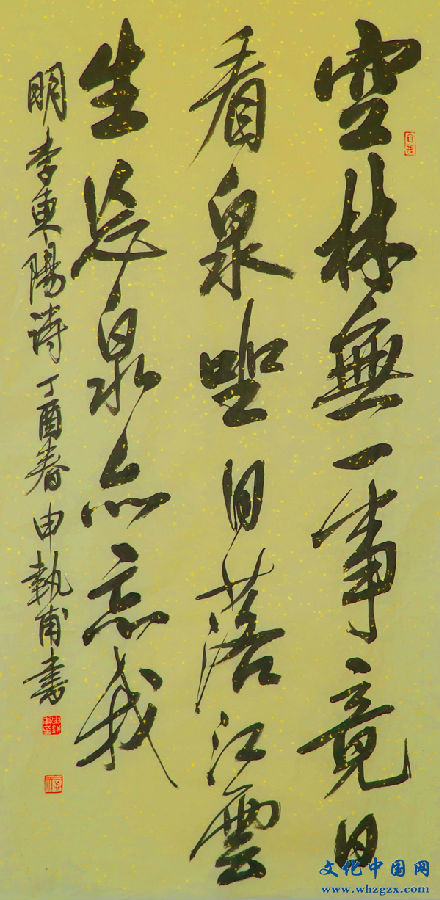 空林無一事竟日
看泉坐日落江雲
生忘泉亦忘我
明李東陽詩丁酉春申執甫書
文化中国网
www.whzgzx.com